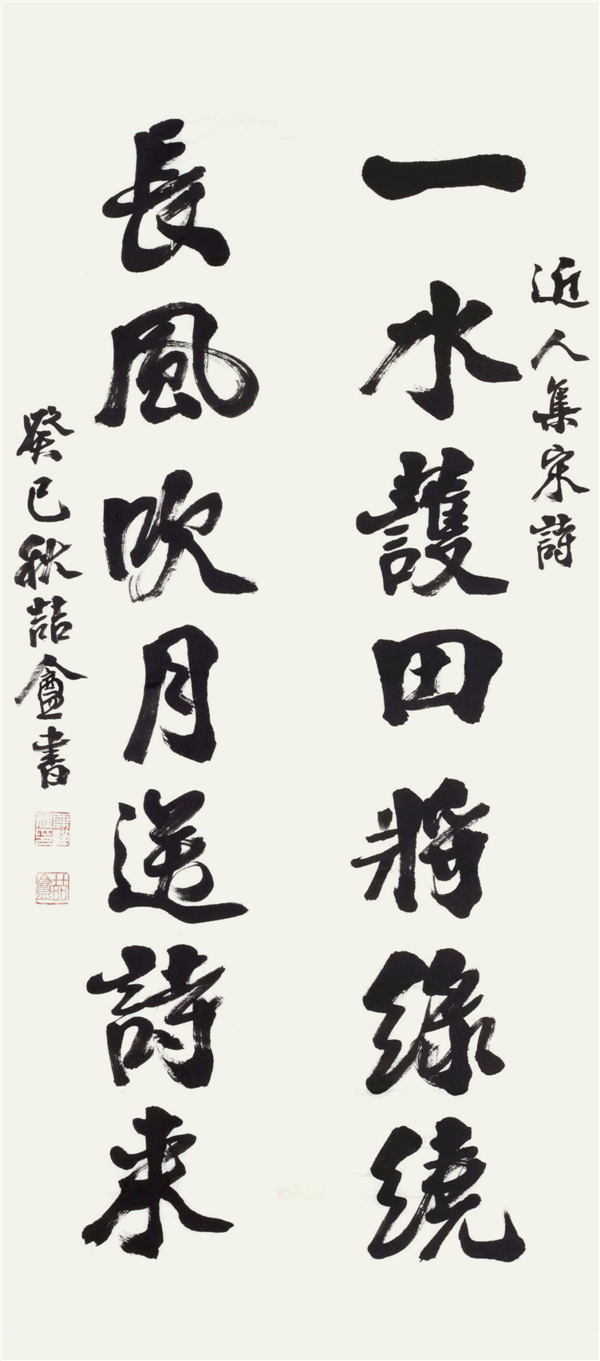 近人集宋詩
一水護田將綠繞
長風吹月送詩來
癸巳秋喆盦書
喆盦